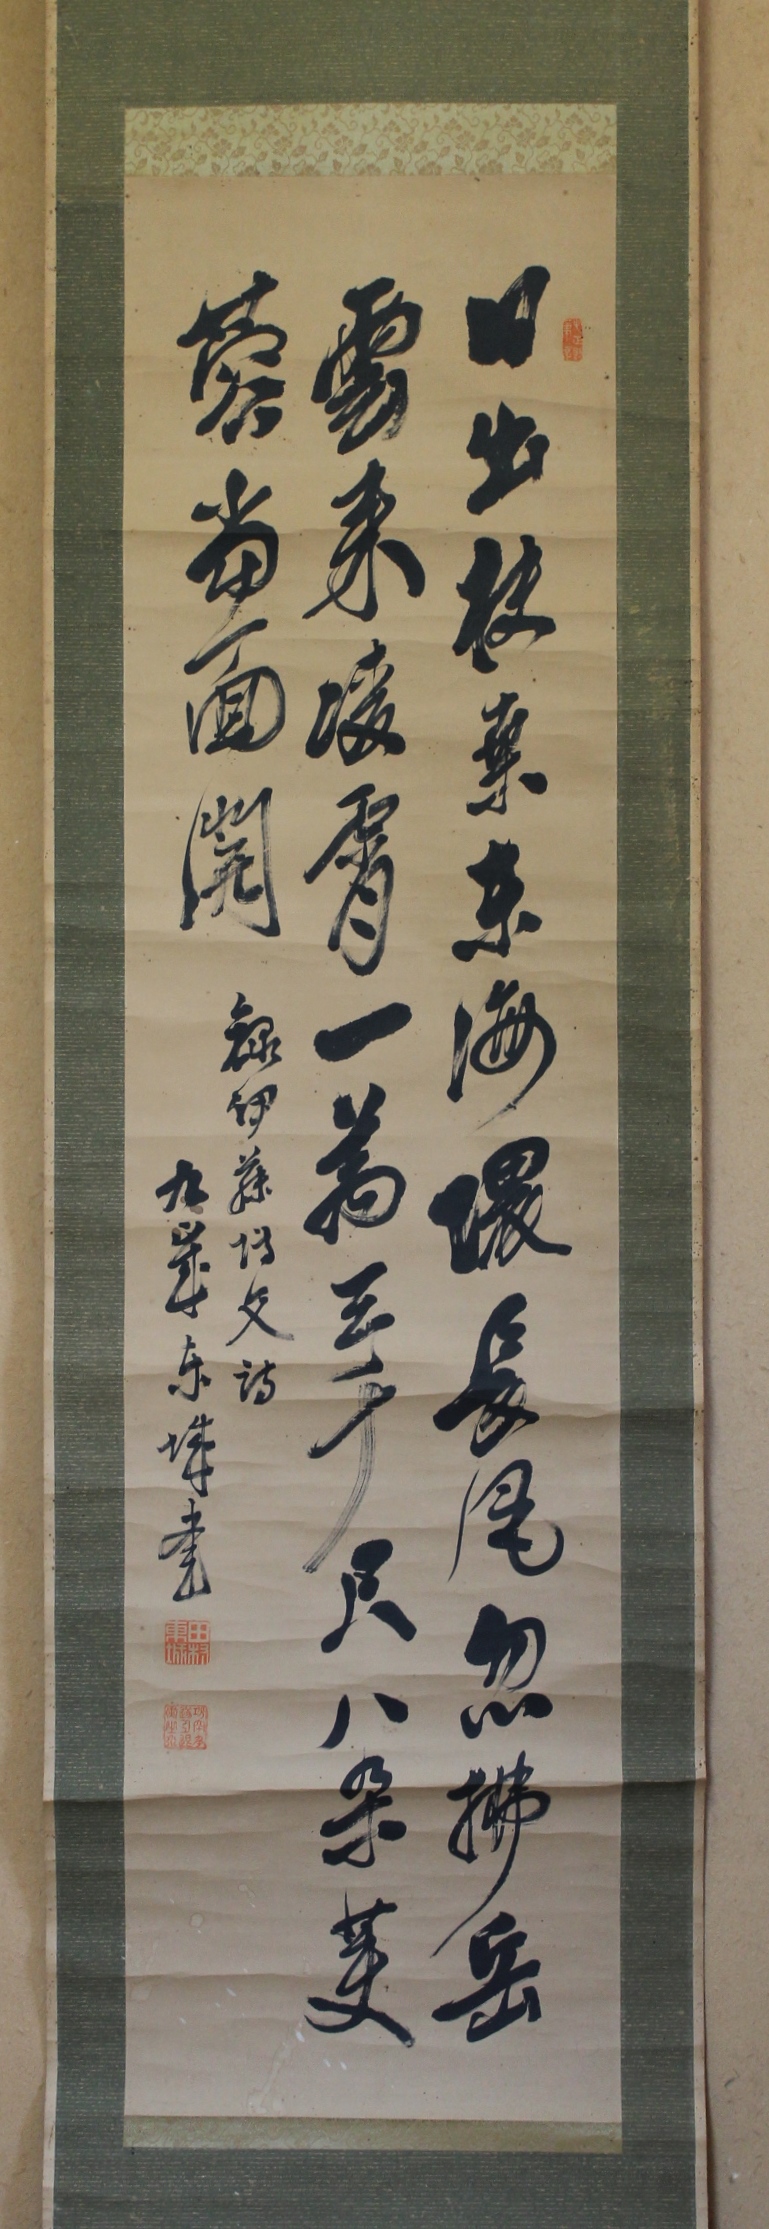 日出扶桑東海隈長風忽拂岳
雲来凌霄一萬三千尺八朶芙
蓉當面開
録伊藤博文詩
九歳東城書
田村東城